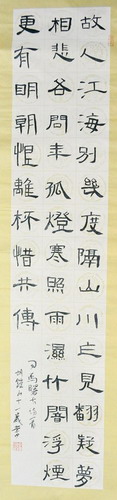 故人江海別幾度隔山川乍見翻疑夢
相悲各問年孤燈寒照雨濕竹闇浮煙
更有明朝恨離杯惜共傳